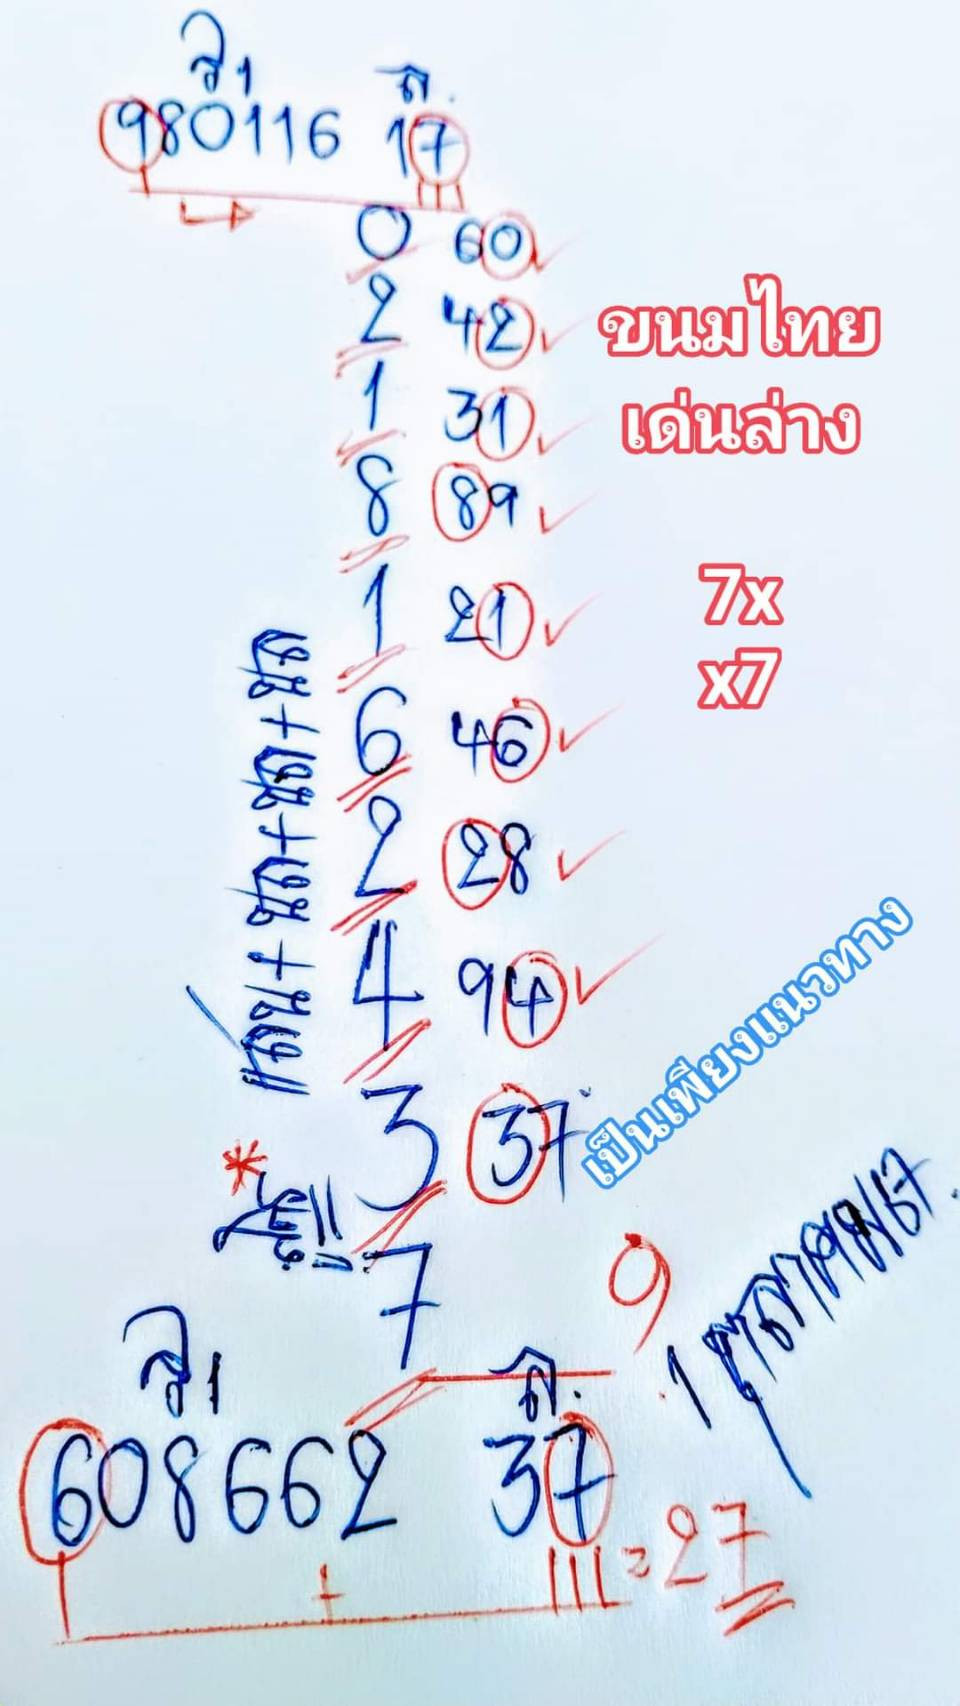 ว1 ล.
980116 17
0 60
2 42
1 31
8 89
1 21
6 46
2 28
4 94
3 37
7
9
ขนมไทย
เด่นล่าง
7x
x7
เป็นเพียงแนวทาง
1 ตุลาคม 67
ว1 ล.
608662 37
+
=27